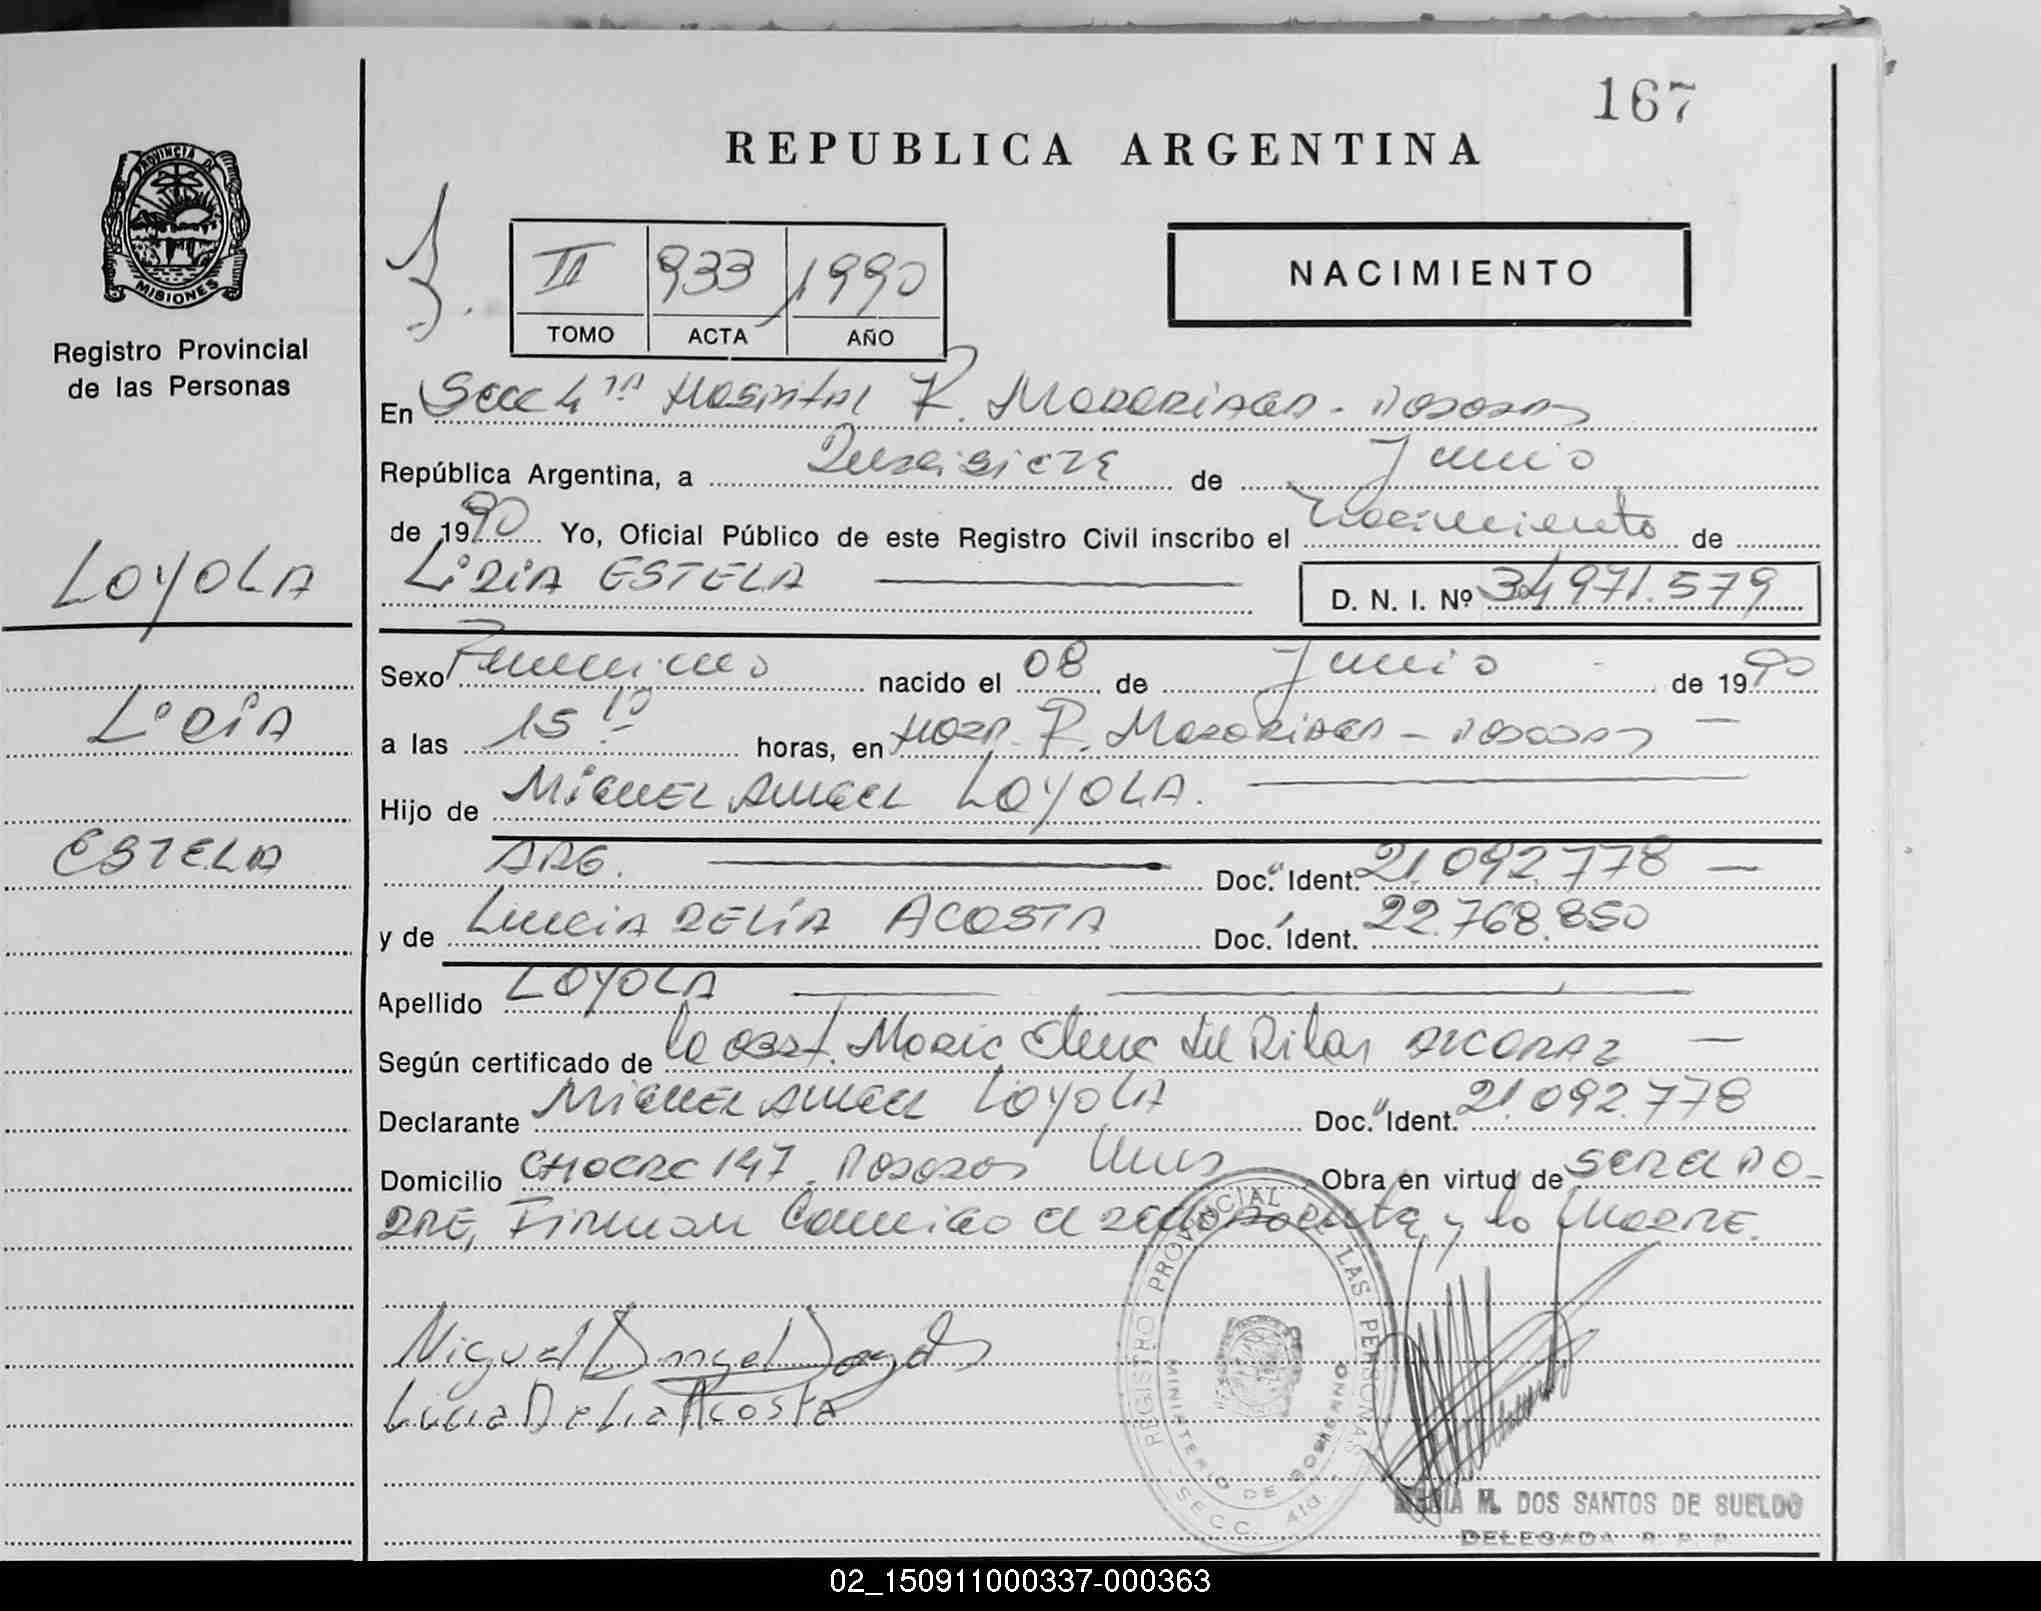 167
REPUBLICA ARGENTINA
PROVINCIA DE
MISIONES
Registro Provincial
de las Personas
II 933 1990
TOMO ACTA AÑO
NACIMIENTO
En Secc 4ta Hospital R. Madariaga - Posadas
República Argentina, a Diecisiete de Junio
de 1990 Yo, Oficial Público de este Registro Civil inscribo el nacimiento de
LOYOLA
LidiA ESTELA
D. N. I. Nº 34.971.579
Sexo Femenino nacido el 08 de Junio de 1990
LidiA
a las 15 10 horas, en Hosp. R. Madariaga - Posadas
Hijo de MiGUEL ANGEL LOYOLA.
ESTELA
ARG. Doc. Ident. 21.092.778
y de LUCIA DELIA ACOSTA Doc. Ident. 22.768.850
Apellido LOYOLA
Según certificado de la obst. Maria Elena del Pilar ALCARAZ
Declarante MIGUEL ANGEL LOYOLA Doc. Ident. 21.092.778
Domicilio 147. Posadas Mnes Obra en virtud de SER EL PA-
DRE, FIRMAN Conmigo el declarante y la MADRE.
Miguel Angel Loyola
Lucia Delia Acosta
REGISTRO PROVINCIAL DE LAS PERSONAS
MINISTERIO DE GOBIERNO
SECC. 4ta.
MARIA M. DOS SANTOS DE SUELDO
DELEGADA R. P. P.
02_150911000337-000363